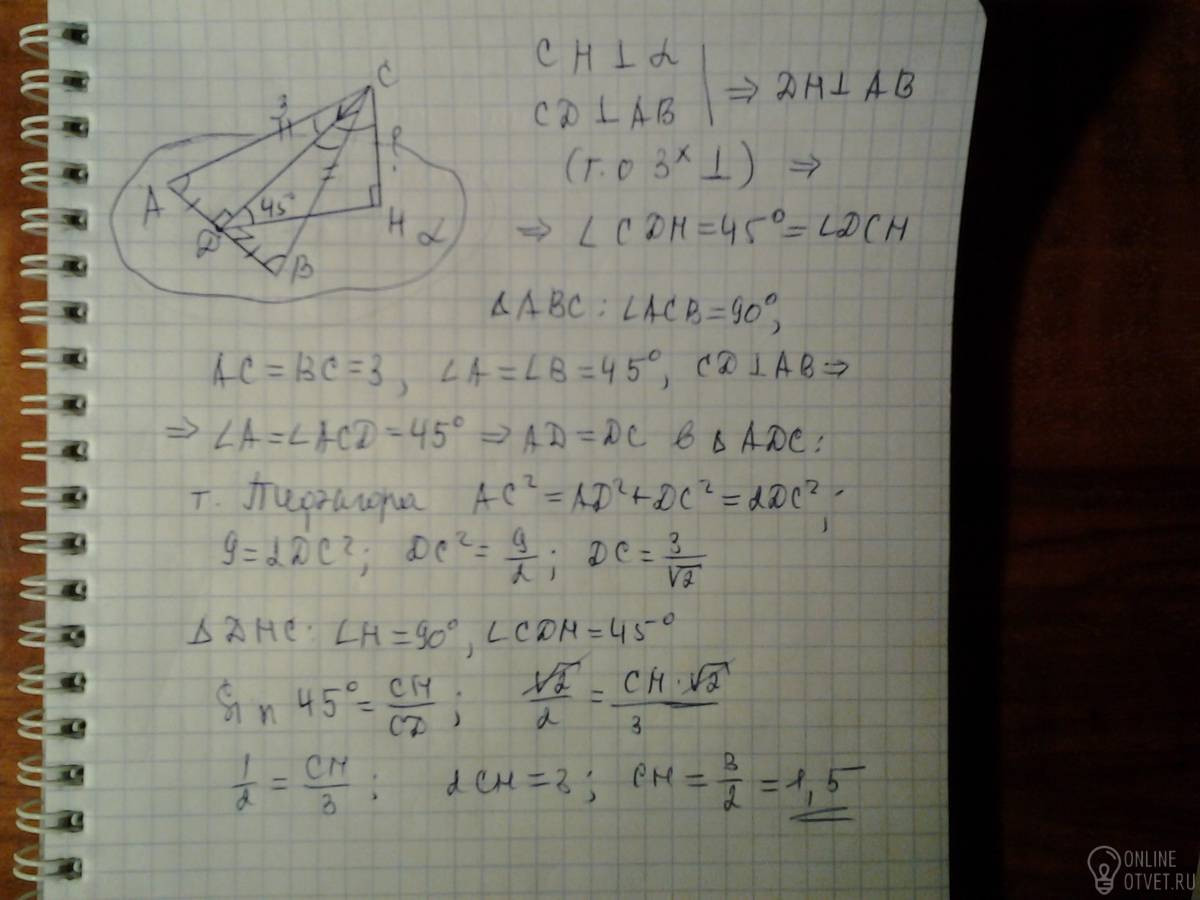 C
3
?
A
45°
H
α
D
B
CH ⊥ α
CD ⊥ AB | ⇒ DH ⊥ AB
(т. о 3ˣ ⊥) ⇒
⇒ ∠CDH = 45° = ∠DCH
ΔABC: ∠ACB = 90°,
AC = BC = 3, ∠A = ∠B = 45°, CD ⊥ AB ⇒
⇒ ∠A = ∠ACD = 45° ⇒ AD = DC в ΔADC:
т. Пифагора AC² = AD² + DC² = 2DC²;
9 = 2DC²; DC² = 9/2; DC = 3/√2
ΔDHC: ∠H = 90°, ∠CDH = 45°
Sin 45° = CH/CD; √2/2 = CH·√2/3
1/2 = CH/3; 2CH = 3; CH = 3/2 = 1,5
ONLINE
OTVET.RU